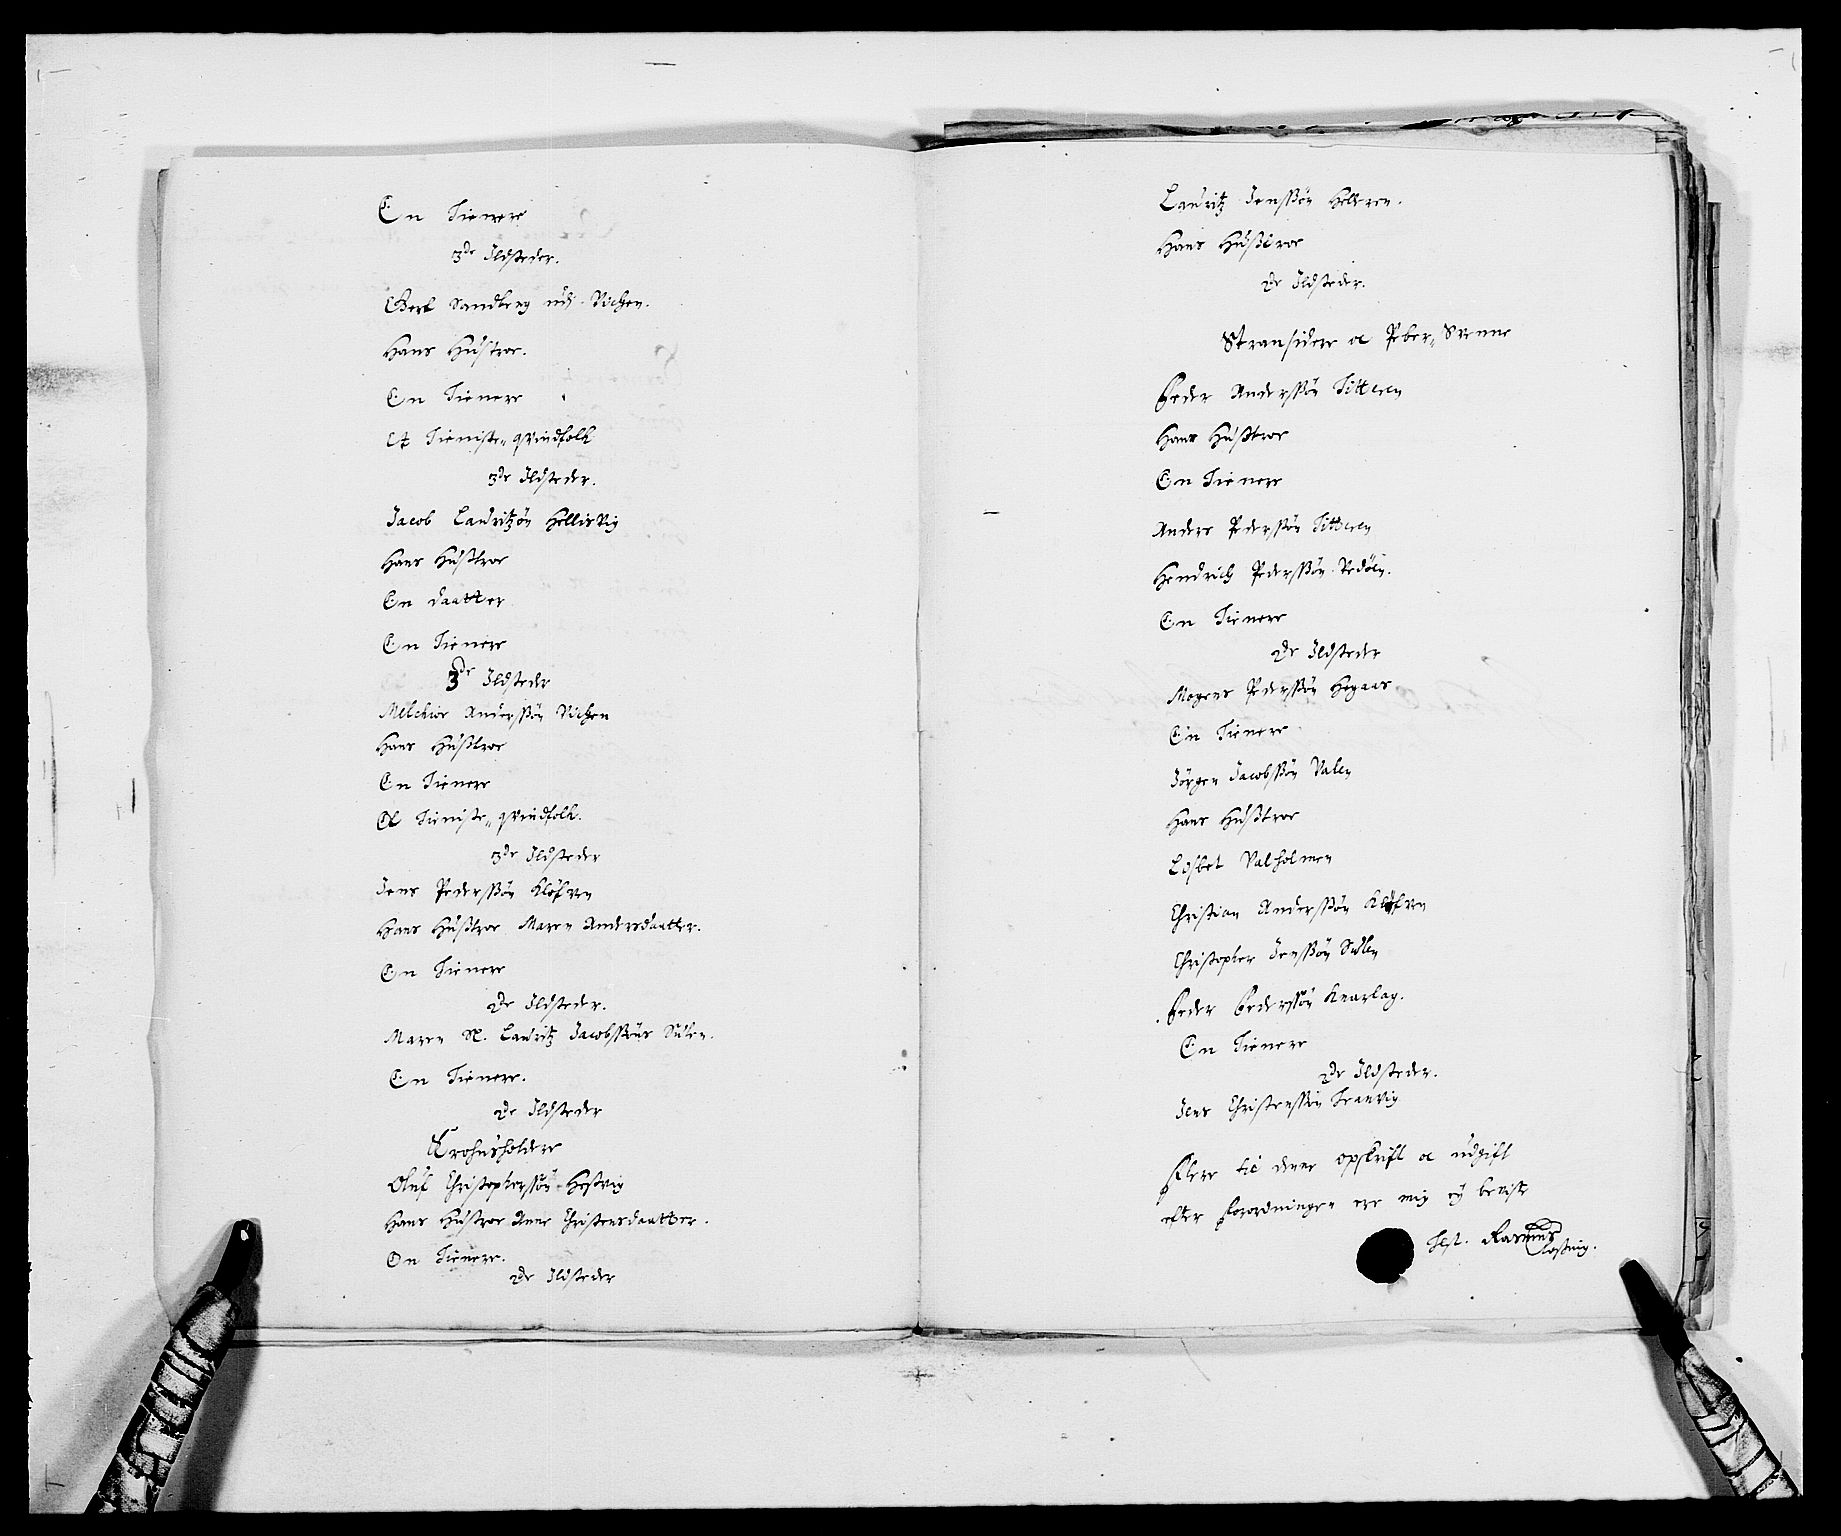 En Tienere
3de Ildsteder.
Gert Sandberg udi Vichen.
Hans Hustroe.
En Tienere
Et Tieniste„ qvindfolk
3de Ildsteder.
Jacob Lauritzøn Hellisvig
Hans Hußtroe
En daatter
En Tienere
3de Ildsteder
Melchior Anderssøn Vichen
Hans Hußtroe
En Tienere
Et Tieniste„ qvindfolk.
3de Ildsteder
Jens Pederssøn Kløfven
Hans Hußtroe Maren Andersdaatter.
En Tienere
2de Ildsteder.
Maren Sl. Lauritz Jacobssøns Sulen.
En Tienere.
2de Ildsteder
Krohusholdere
Oluf Christopherssøn Hestvig
Hans Hustroe Anne Christensdaatter.
En Tienere.
2de Ildsteder
Lauritz Jenssøn Helleren.
Hans Hußtroe
2de Ildsteder.
Stransidere oc Peber„ Svenne
Peder Anderssøn Titteren
Hans Hußtroe
En Tienere
Anders Pederssøn Titteren
Hendrich Pederssøn Redøen.
En Tienere
2de Ildsteder
Mogens Pederssøn Hegaas
En Tienere
Jørgen Jacobssøn Valen
Hans Hußtroe
Lisbet Valholmen
Christian Anderssøn Kløfven
Christopher Jenssøn Sulen
Peder Pederssøn Knarlag.
En Tienere
2de Ildsteder.
Jens Christenssøn
Flere til denne opskrift oc udgift
efter forordningen ere mig ey beviste
Test. Rasmus